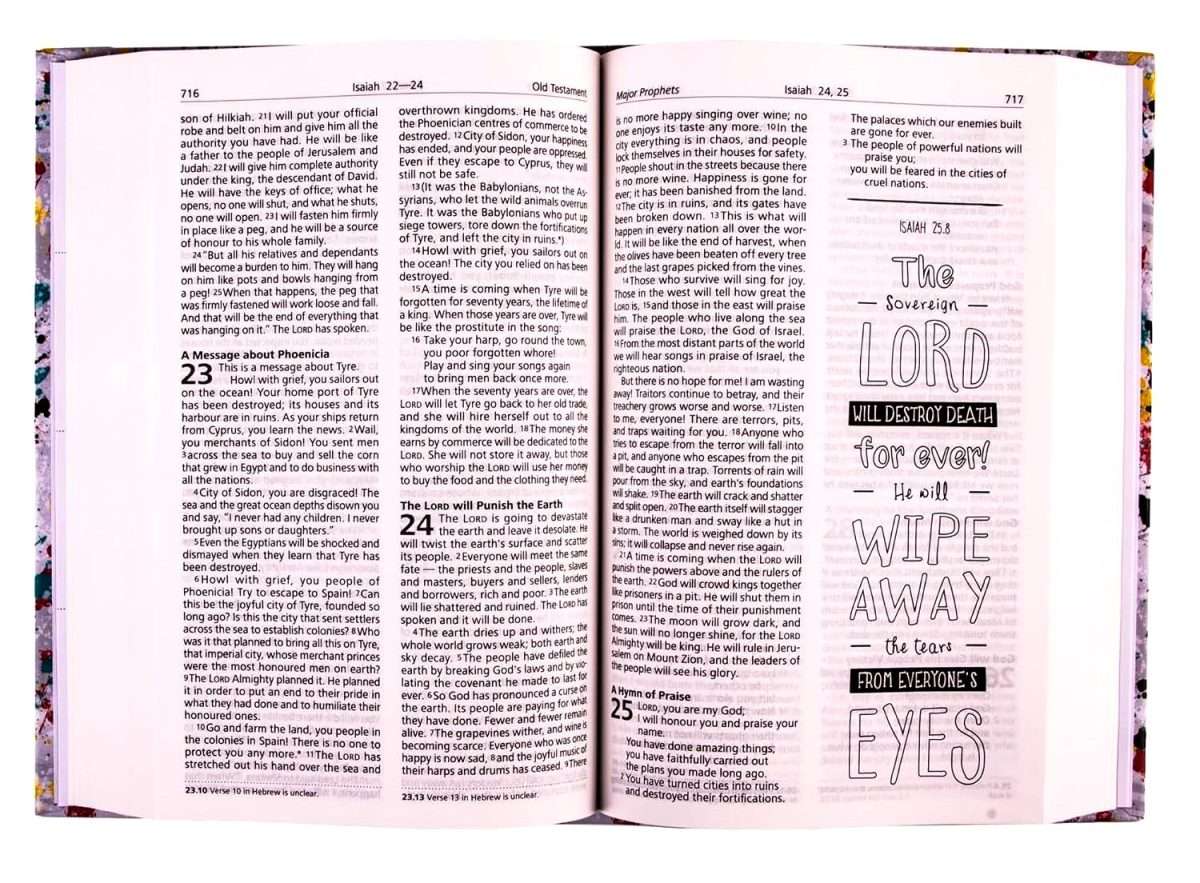 716
Isaiah 22—24
Old Testament
son of Hilkiah. 21I will put your official
robe and belt on him and give him all the
authority you have had. He will be like
a father to the people of Jerusalem and
Judah. 22I will give him complete authority
under the king, the descendant of David.
He will have the keys of office; what he
opens, no one will shut, and what he shuts,
no one will open. 23I will fasten him firmly
in place like a peg, and he will be a source
of honour to his whole family.
24“But all his relatives and dependants
will become a burden to him. They will hang
on him like pots and bowls hanging from
a peg! 25When that happens, the peg that
was firmly fastened will work loose and fall.
And that will be the end of everything that
was hanging on it.” The LORD has spoken.
A Message about Phoenicia
23 This is a message about Tyre.
Howl with grief, you sailors out
on the ocean! Your home port of Tyre
has been destroyed; its houses and its
harbour are in ruins. As your ships return
from Cyprus, you learn the news. 2Wail,
you merchants of Sidon! You sent men
3across the sea to buy and sell the corn
that grew in Egypt and to do business with
all the nations.
4City of Sidon, you are disgraced! The
sea and the great ocean depths disown you
and say, “I never had any children. I never
brought up sons or daughters.”
5Even the Egyptians will be shocked and
dismayed when they learn that Tyre has
been destroyed.
6Howl with grief, you people of
Phoenicia! Try to escape to Spain! 7Can
this be the joyful city of Tyre, founded so
long ago? Is this the city that sent settlers
across the sea to establish colonies? 8Who
was it that planned to bring all this on Tyre,
that imperial city, whose merchant princes
were the most honoured men on earth?
9The LORD Almighty planned it. He planned
it in order to put an end to their pride in
what they had done and to humiliate their
honoured ones.
10Go and farm the land, you people in
the colonies in Spain! There is no one to
protect you any more.* 11The LORD has
stretched out his hand over the sea and
23.10 Verse 10 in Hebrew is unclear.
overthrown kingdoms. He has ordered
the Phoenician centres of commerce to be
destroyed. 12City of Sidon, your happiness
has ended, and your people are oppressed.
Even if they escape to Cyprus, they will
still not be safe.
13(It was the Babylonians, not the As-
syrians, who let the wild animals overrun
Tyre. It was the Babylonians who put up
siege towers, tore down the fortifications
of Tyre, and left the city in ruins.*)
14Howl with grief, you sailors out on
the ocean! The city you relied on has been
destroyed.
15A time is coming when Tyre will be
forgotten for seventy years, the lifetime of
a king. When those years are over, Tyre will
be like the prostitute in the song:
16 Take your harp, go round the town,
you poor forgotten whore!
Play and sing your songs again
to bring men back once more.
17When the seventy years are over, the
LORD will let Tyre go back to her old trade,
and she will hire herself out to all the
kingdoms of the world. 18The money she
earns by commerce will be dedicated to the
LORD. She will not store it away, but those
who worship the LORD will use her money
to buy the food and the clothing they need.
The LORD will Punish the Earth
24 The LORD is going to devastate
the earth and leave it desolate. He
will twist the earth's surface and scatter
its people. 2Everyone will meet the same
fate — the priests and the people, slaves
and masters, buyers and sellers, lenders
and borrowers, rich and poor. 3The earth
will lie shattered and ruined. The LORD has
spoken and it will be done.
4The earth dries up and withers; the
whole world grows weak; both earth and
sky decay. 5The people have defiled the
earth by breaking God's laws and by vio-
lating the covenant he made to last for
ever. 6So God has pronounced a curse on
the earth. Its people are paying for what
they have done. Fewer and fewer remain
alive. 7The grapevines wither, and wine is
becoming scarce. Everyone who was once
happy is now sad, 8and the joyful music of
their harps and drums has ceased. 9There
23.13 Verse 13 in Hebrew is unclear.
Major Prophets
Isaiah 24, 25
717
is no more happy singing over wine; no
one enjoys its taste any more. 10In the
city everything is in chaos, and people
lock themselves in their houses for safety.
11People shout in the streets because there
is no more wine. Happiness is gone for
ever; it has been banished from the land.
12The city is in ruins, and its gates have
been broken down. 13This is what will
happen in every nation all over the wor-
ld. It will be like the end of harvest, when
the olives have been beaten off every tree
and the last grapes picked from the vines.
14Those who survive will sing for joy.
Those in the west will tell how great the
LORD is, 15and those in the east will praise
him. The people who live along the sea
will praise the LORD, the God of Israel.
16From the most distant parts of the world
we will hear songs in praise of Israel, the
righteous nation.
But there is no hope for me! I am wasting
away! Traitors continue to betray, and their
treachery grows worse and worse. 17Listen
to me, everyone! There are terrors, pits,
and traps waiting for you. 18Anyone who
tries to escape from the terror will fall into
a pit, and anyone who escapes from the pit
will be caught in a trap. Torrents of rain will
pour from the sky, and earth's foundations
will shake. 19The earth will crack and shatter
and split open. 20The earth itself will stagger
like a drunken man and sway like a hut in
a storm. The world is weighed down by its
sins; it will collapse and never rise again.
21A time is coming when the LORD will
punish the powers above and the rulers of
the earth. 22God will crowd kings together
like prisoners in a pit. He will shut them in
prison until the time of their punishment
comes. 23The moon will grow dark, and
the sun will no longer shine, for the LORD
Almighty will be king. He will rule in Jeru-
salem on Mount Zion, and the leaders of
the people will see his glory.
A Hymn of Praise
25 LORD, you are my God;
I will honour you and praise your
name.
You have done amazing things;
you have faithfully carried out
the plans you made long ago.
2 You have turned cities into ruins
and destroyed their fortifications.
The palaces which our enemies built
are gone for ever.
3 The people of powerful nations will
praise you;
you will be feared in the cities of
cruel nations.
ISAIAH 25.8
The
Sovereign
LORD
WILL DESTROY DEATH
for ever!
He will
WIPE
AWAY
the tears
FROM EVERYONE'S
EYES